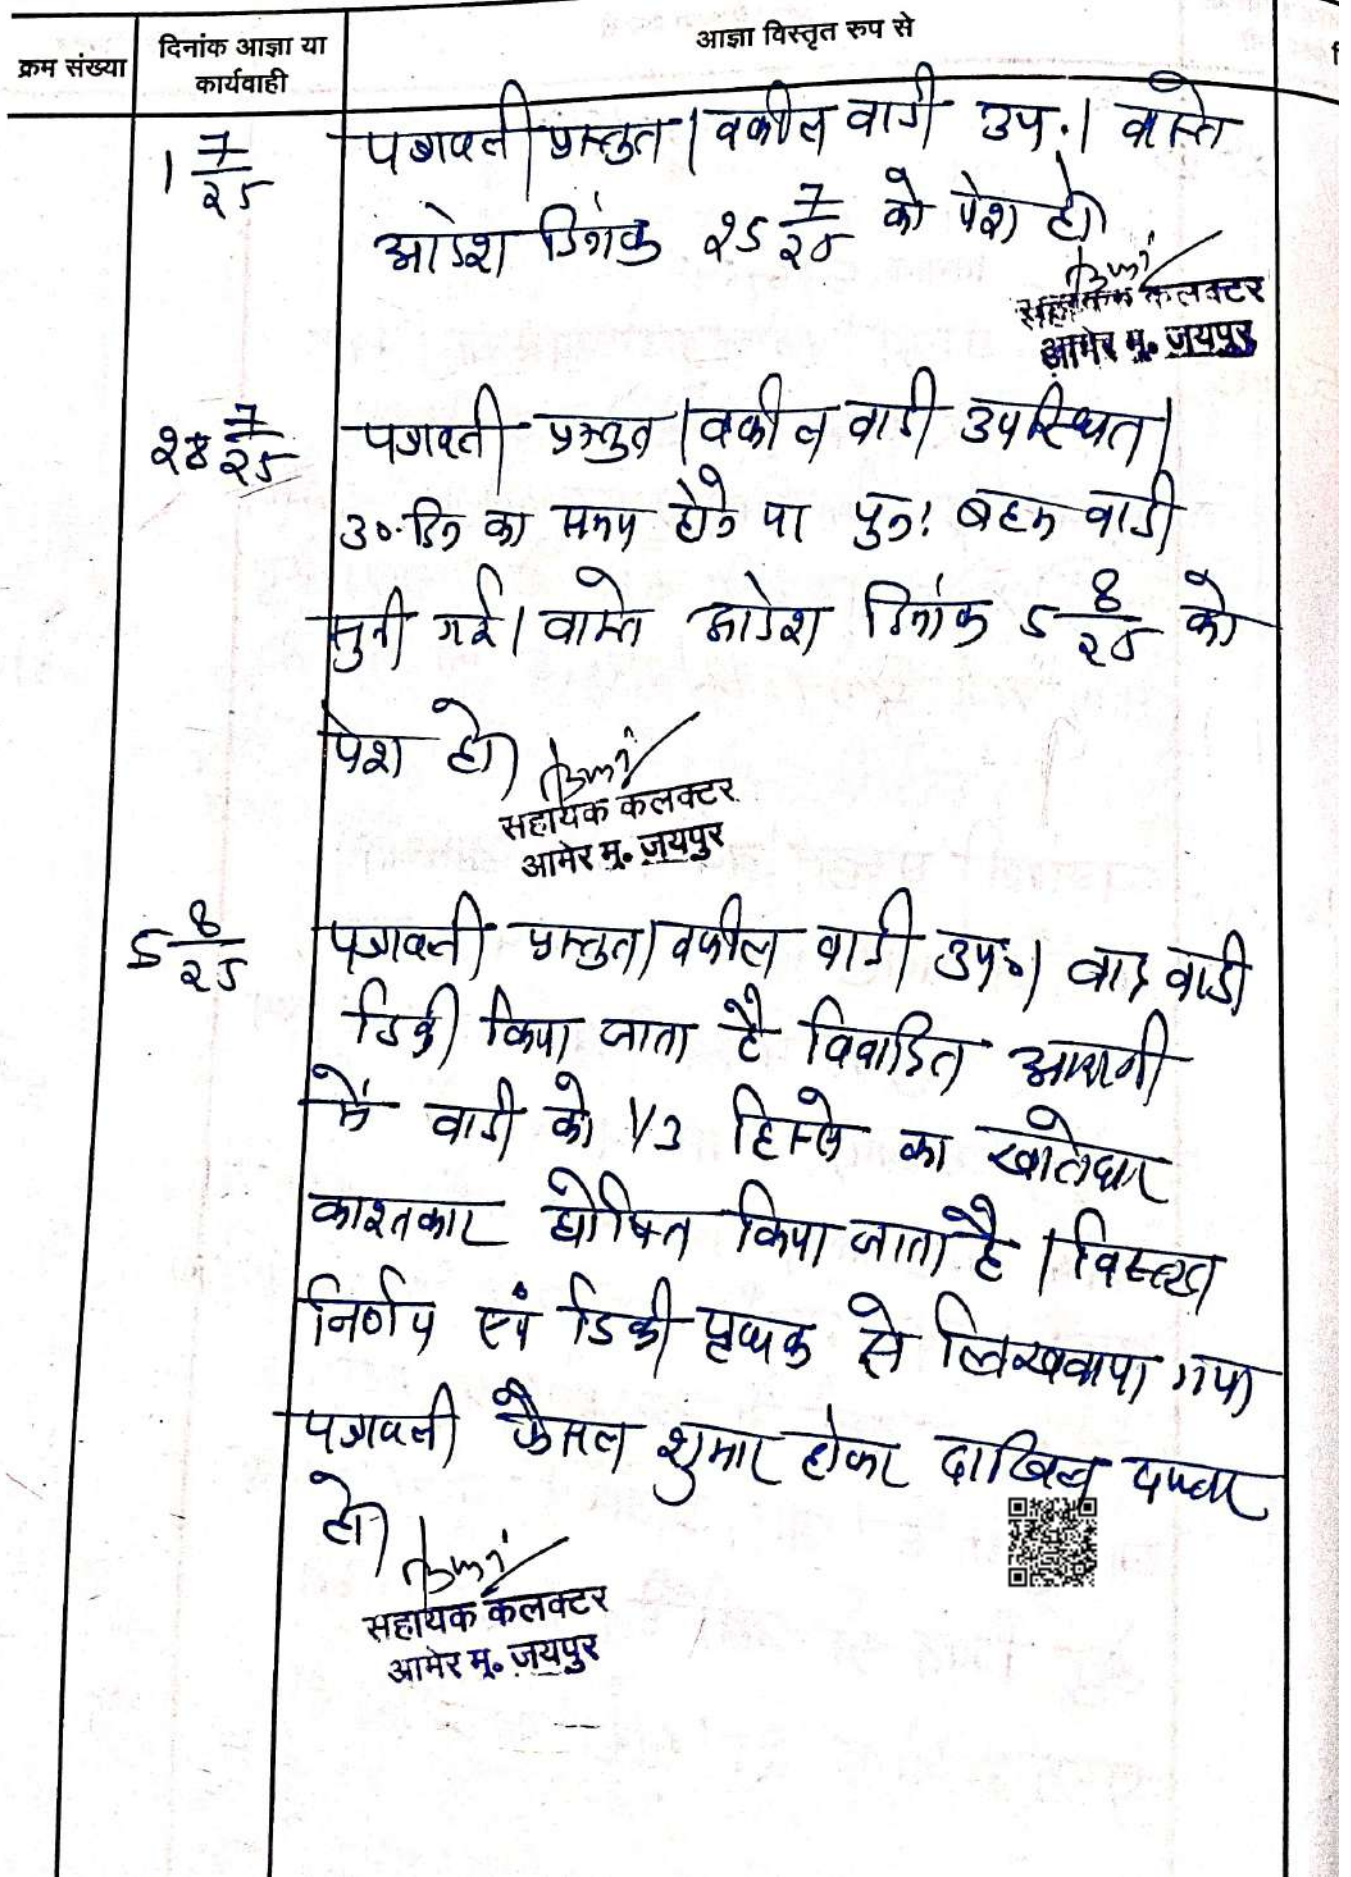 क्रम संख्या
दिनांक आज्ञा या
कार्यवाही
आज्ञा विस्तृत रूप से
1 7/25
पत्रावली प्रस्तुत। वकील वादी उप.। वास्ते
आदेश दिनांक 25 7/25 को पेश हो।
सहायक कलक्टर
आमेर मु. जयपुर
7/25
पत्रावली प्रस्तुत। वकील वादी उपस्थित।
30 दिन का समय होने पर पुनः बहस वादी
सुनी गई। वास्ते आदेश दिनांक 5 8/25 को
पेश हो।
सहायक कलक्टर
आमेर मु. जयपुर
5 8/25
पत्रावली प्रस्तुत। वकील वादी उप.। वाद वादी
डिक्री किया जाता है विवादित आराजी
में वादी को 1/3 हिस्से का खातेदार
काश्तकार घोषित किया जाता है। विस्तृत
निर्णय एवं डिक्री पृथक से लिखवाया गया
पत्रावली फैसल शुमार होकर दाखिल दफ्तर
हो।
सहायक कलक्टर
आमेर मु. जयपुर